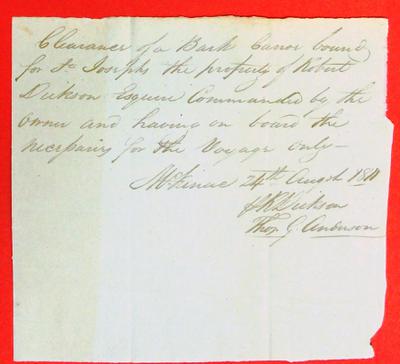 Clearance of a Bark Canoe bound
for St Josephs the property of Robert
Dickson Esquire Commanded by the
owner and having on board the
necessaries for the Voyage only—
McKinac 24th August 1811
Dickson
Thos. G. Anderson